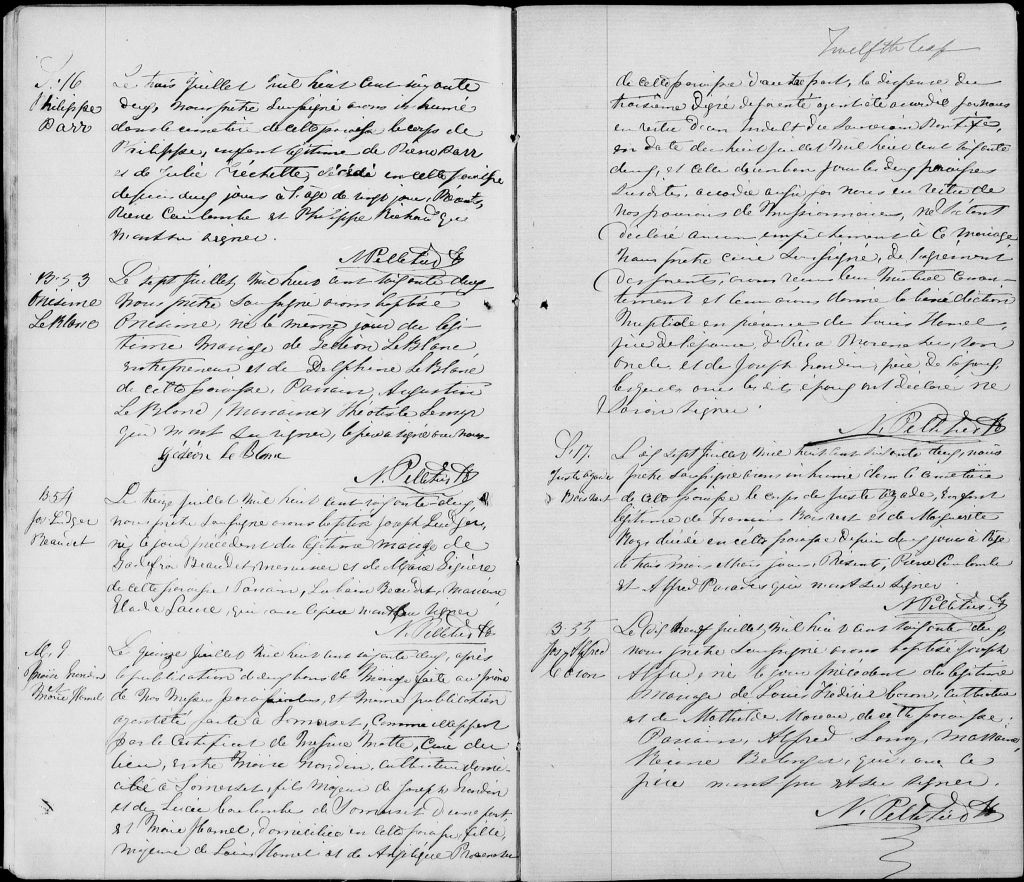 S. 16
Philippe
Parr
Le trois Juillet mil huit cent soixante
deux, nous prêtre soussigné avons inhumé
dans le cimetière de cette paroisse le corps de
Philippe, enfant légitime de Pierre Parr
et de Julie Fréchette, décédé en cette paroisse
depuis deux jours à l'âge de vingt jours, Présents,
Pierre Coulombe et Philippe Richard qui
n'ont su signer.
N. Pelletier Ptr
B. 53
Onesime
LeBlanc
Le sept Juillet mil huit cent soixante deux
nous prêtre soussigné avons baptisé
Onesime, né le même jour du légi-
time mariage de Gédéon LeBlanc,
entrepreneur et de Delphine LeBlanc
de cette paroisse, Parrain, Augustin
LeBlanc, Marraine, Théotiste
qui n'ont su signer, le père a signé avec nous
Gédéon LeBlanc
N. Pelletier Ptr
B 54
Jos Ludger
Beaudet
Le treize Juillet mil huit cent soixante deux,
nous prêtre soussigné avons baptisé Joseph Ludger,
né le jour précédent du légitime mariage de
Beaudet, menuisier et de Marie
de cette paroisse, Parrain, Beaudet, Marraine,
qui avec le père n'ont su signer
N. Pelletier Ptr
M. 9
Moïse
Marie Hamel
Le quinze Juillet mil huit cent soixante deux, après
la publication de deux bans de Mariage faite au prône
de nos Messes paroissiales, et même publication
ayant été faite à Somerset, comme il appert
par le certificat de Messire Motte, Curé du
lieu, entre Moïse cultivateur domi-
cilié à Somerset, fils majeur de Joseph
et de Lucie Coulombe de Somerset d'une part,
et Marie Hamel, domiciliée en cette paroisse, fille
majeure de Louis Hamel et de Angélique
Twelfth leaf
de cette paroisse d'autre part, la dispense du
troisième degré de parenté ayant été accordée par nous
en vertu d'un Indult du Souverain Pontife,
en date du huit Juillet mil huit cent soixante
deux, et celle d'un ban pour les deux paroisses
susdites, accordée aussi par nous en vertu de
nos pouvoirs de Missionnaire, ne s'étant
déclaré aucun empêchement à ce mariage,
nous prêtre curé soussigné, de l'agrément
des parents, avons reçu leur mutuel consen-
tement et leur avons donné la bénédiction
Nuptiale en présence de Louis Hamel,
père de l'épouse, de Pierre son
oncle, et de Joseph père de l'époux,
lesquels avec les dits époux ont déclaré ne
savoir signer.
N. Pelletier Ptr
S. 17.
Juste Agade
Boisvert
Le dix sept Juillet mil huit cent soixante deux, nous
prêtre soussigné avons inhumé dans le cimetière
de cette paroisse le corps de Juste Agade, Enfant
légitime de Boisvert et de Marguerite
Roy décédé en cette paroisse depuis deux jours à l'âge
de trois mois et huit jours, Présents, Pierre Coulombe
et Alfred qui n'ont su signer.
N. Pelletier Ptr
B. 55
Jos Alfred
Caron
Le dix neuf Juillet, mil huit cent soixante deux
nous prêtre soussigné avons baptisé Joseph
Alfred, né le jour précédent du légitime
mariage de Louis Caron, cultivateur
et de Mathilde de cette paroisse.
Parrain, Alfred Marraine,
Belanger, qui, avec le
père n'ont pas su signer.
N. Pelletier Ptr